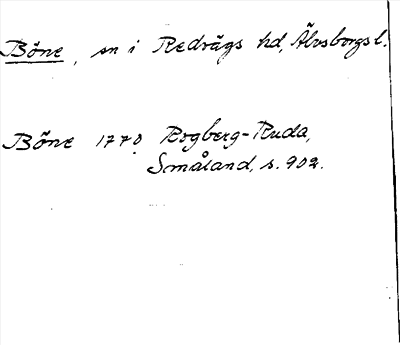 Böne, sn i Redvägs hd, Älvsborgs l.
Böne 1770 Rogberg-Ruda,
Småland, s. 902.